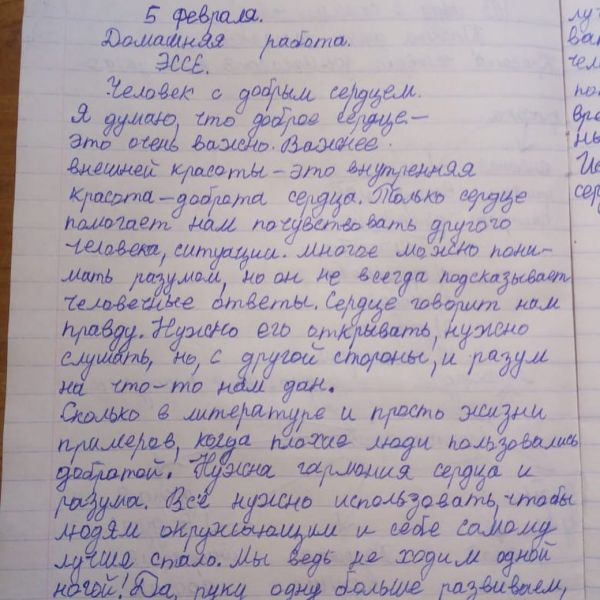 5 февраля.
Домашняя работа.
ЭССЕ.
Человек с добрым сердцем.
Я думаю, что доброе сердце –
это очень важно. Важнее
внешней красоты – это внутренняя
красота – доброта сердца. Только сердце
помогает нам почувствовать другого
человека, ситуации. Многое можно пони-
мать разумом, но он не всегда подсказывает
человечные ответы. Сердце говорит нам
правду. Нужно его открывать, нужно
слушать, но, с другой стороны, и разум
на что-то нам дан.
Сколько в литературе и просто жизни
примеров, когда плохие люди пользовались
добротой. Нужна гармония сердца и
разума. Все нужно использовать, чтобы
людям окружающим и себе самому
лучше стало. Мы ведь не ходим одной
ногой! Да, руку одну больше развиваем,